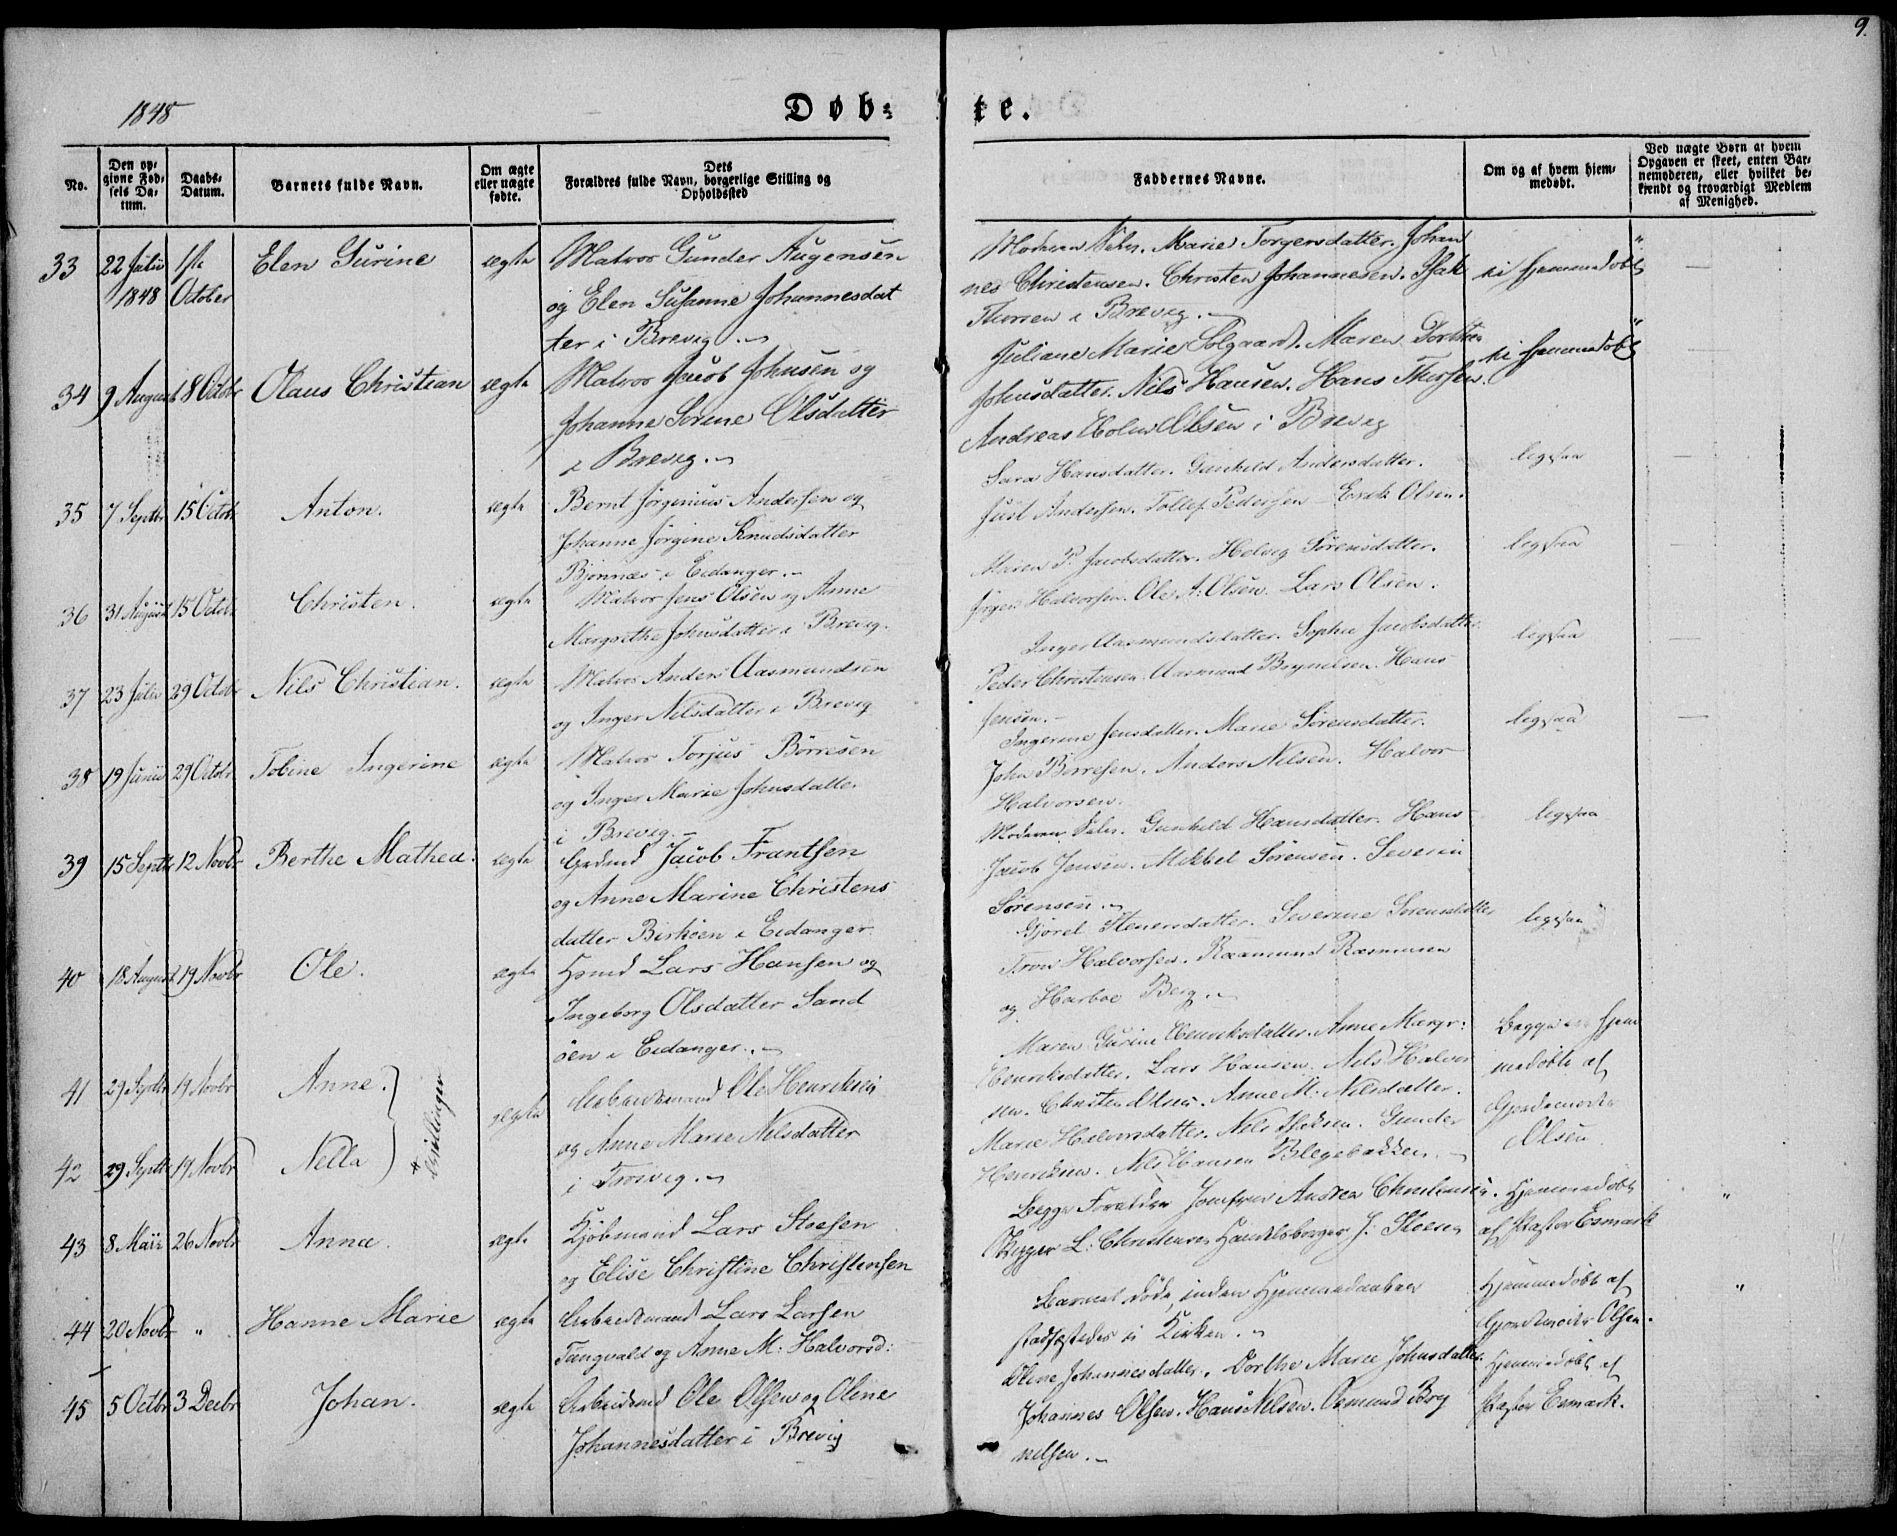 9.
1848
Døb=
te.
No.
Den op=
givne Fød=
sels Da=
tum.
Daabs=
Datum.
Barnets fulde Navn.
Om ægte
eller uægte
fødte.
Dets
Forældres fulde Navn, borgerlige Stilling og
Opholdssted
Faddernes Navne.
Om og af hvem hjem=
medøbt.
Ved uægte Børn af hvem
Opgaven er skeet, enten Bar=
nemoderen, eller hvilket be=
kjendt og troværdigt Medlem
af Menighed.
33
22 Julii
1848
1ste
October
Elen Gurine
ægte
Matros Gunder Augensen
og Elen Susanne Johannesdat
ter i Brevig.
Moderen selv. Marie Torgersdatter. Johan
nes Christensen. Christen Johannesen. Isak
Thorsen i Brevig.
ei hjemmedøbt
34
9 August
8 Octobr
Olaus Christian
ægte
Matros Jacob Johnsen og
Johanne Sorine Olsdatter
i Brevig.
Juliane Marie Solgaard. Maren Dorthea
Johnsdatter. Nils Hansen. Hans Thorsen.
Andreas Holm Olsen i Brevig
ei hjemmedøbt
35
7 Septbr
15 Octobr
Anton.
ægte
Bernt Jørginius Andersen og
Johanne Jørgine Knudsdatter
Bjønnes i Eidanger.
Sara Hansdatter. Gunhild Andersdatter.
Just Andersen. Tollef Pedersen. Erik Olsen.
ligesaa
36
31 August
15 Octobr
Christen.
ægte
Matros Jens Olsen og Anne
Margrethe Johnsdatter i Brevig.
Maren P. Jacobsdatter. Helvig Sørensdatter.
Jørgen Halvorsen. Ole A: Olsen. Lars Olsen.
ligesaa
37
23 Julii
29 Octobr
Nils Christian.
ægte
Matros Anders Aasmundsen
og Inger Nilsdatter i Brevig
Inger Aasmundsdatter. Sophie Jacobsdatter
Peder Christensen. Aasmund Brynelsen. Hans
Jensen.
ligesaa
38
19 Junii
29 Octobr
Tobine Ingerine
ægte
Matros Torjus Børresen
og Inger Marie Johnsdatter
i Brevig.
Ingerine Jensdatter. Marie Sørensdatter.
John Børresen. Anders Nilsen. Halvor
Halvorsen.
ligesaa
39
15 Septbr
12 Novbr
Berthe Mathea.
ægte
Gaardmd Jacob Frantsen
og Anne Marine Christens
datter Birkøen i Eidanger.
Moderen selv. Gunhild Hansdatter. Hans
Jacob Jensen. Mikkel Sørensen. Severin
Sørensen.
ligesaa
40
18 August
19 Novbr
Ole.
ægte
Hsmd Lars Hansen og
Ingeborg Olsdatter Sand
øen i Eidanger.
Gjørel Stenersdatter. Severine Sørensdatter
Tron Halvorsen. Rasmund Rasmusen
og Harboe Berg.
ligesaa
41
29 Septbr
19 Novbr
Anne.
42
29 Septbr
19 Novbr
Nella
Tvillinger
ægte
Arbeidsmand Ole Henriksen
og Anne Marie Nilsdatter
i Trosvig.
Maren Gurine Henriksdatter. Anne Margr:
Henriksdatter. Lars Hansen. Nils Halvor
sen. Christen Olsen. Anne M: Nilsdatter.
Marie Halvorsdatter. Nils Isaksen. Gunder
Henriksen. Nils Hansen Blegebakken.
Begge ere hjem
medøbte af
Gjordemoder
Olsen.
43
8 Maii
26 Novbr
Anna.
ægte
Kjøbmand Lars Stoesen
og Elise Christine Christensen
Begge Forældre Jomfrue Andrea Christensen.
L: Christensen Handelsborger J: Stoesen
Hjemmedøbt
af Pastor Esmark
44
20 Novbr
"
Hanne Marie
ægte
Arbeidsmand Lars Larsen
Tangvald og Anne M: Halvorsd:
Barnet døde, inden Hjemmedaaben
stadfæstedes i Kirken.
Hjemmedøbt af
Gjordemoder Olsen.
45
5 Octbr
3 Decbr
Johan.
ægte
Arbeidsmd Ole Olsen og Oline
Johannesdatter i Brevig
Oline Johannesdatter. Dorthe Marie Johnsdatter
Johannes Olsen. Hans Nilsen. Osmund Bry
nilsen.
Hjemmedøbt af
Pastor Esmark.